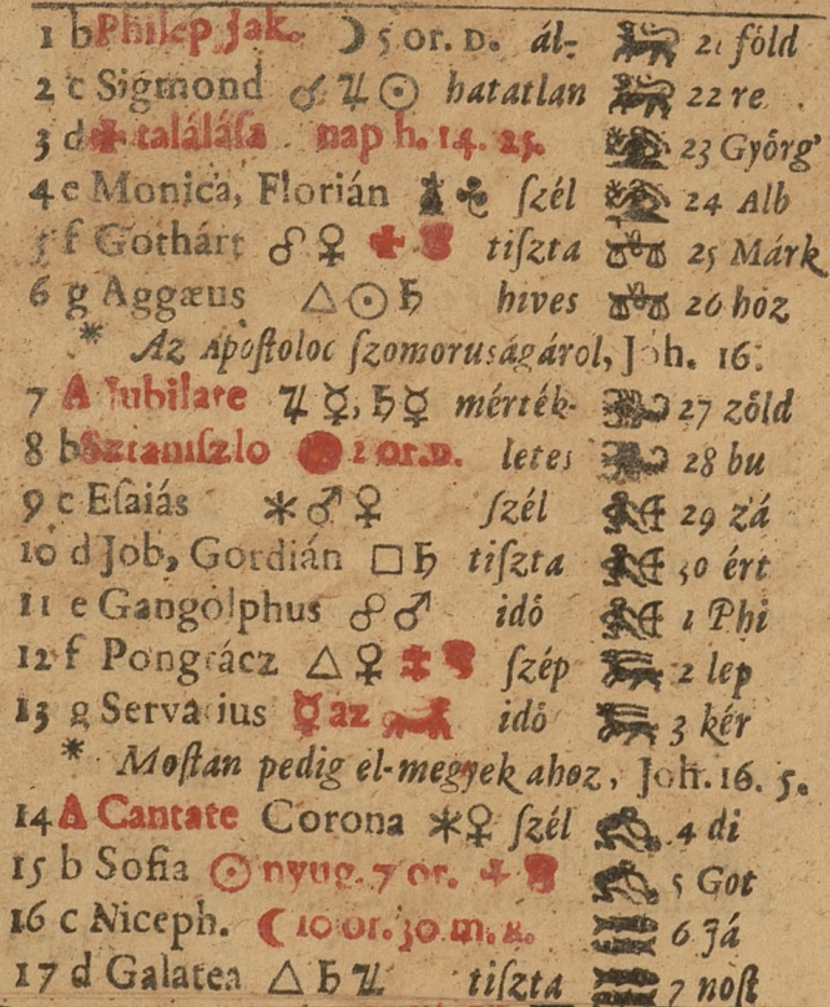 1 b Philep Jak. ☽ 5 or. D. ál- 21 föld
2 c Sigmond ☌ ♃ ☉ hatatlan 22 re
3 d ✚ találáſa nap h. 14. 25. 23 Györg'
4 e Monica, Florián ſzél 24 Alb
5 f Gothárt ☍ ♀ ✚ tiſzta 25 Márk
6 g Aggæus △ ☉ ♄ hives 26 hoz
* Az Apoſtoloc ſzomoruságárol, Joh. 16.
7 A Jubilate ♃ ☿, ♄ ☿ mérték- 27 zöld
8 b Sztaniſzlo 2 or. D. letes 28 bu
9 c Eſaiás ⚹ ♂ ♀ ſzél 29 zá
10 d Job, Gordián □ ♄ tiſzta 30 ért
11 e Gangolphus ☍ ♂ idö 1 Phi
12 f Pongrácz △ ♀ ſzép 2 lep
13 g Servatius ☿ az idö 3 kér
* Moſtan pedig el-megyek ahoz, Joh. 16. 5.
14 A Cantate Corona ⚹ ♀ ſzél 4 di
15 b Sofia ☉ nyug. 7 or. 5 Got
16 c Niceph. ☾ 10 or. 30 m. 6 Já
17 d Galatea △ ♄ ♃ tiſzta 7 noſt